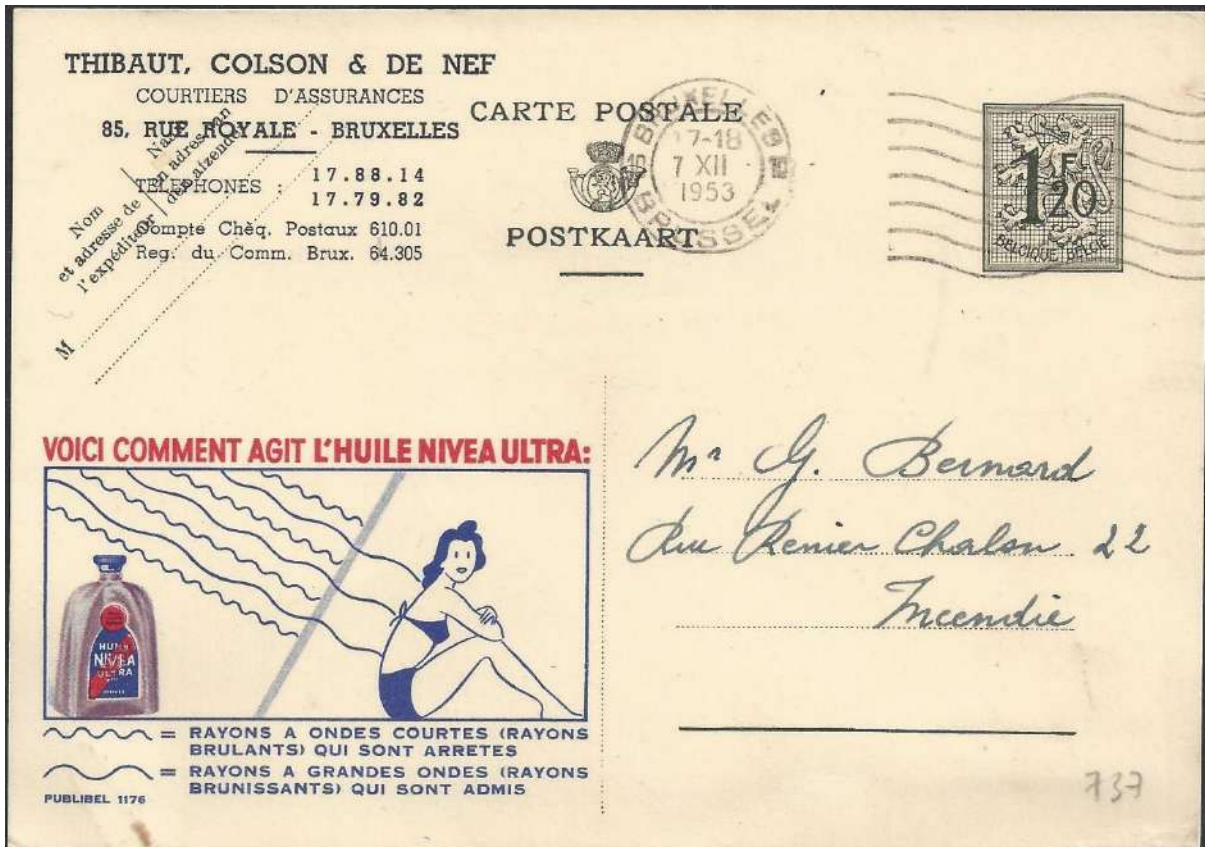 THIBAUT, COLSON & DE NEF
COURTIERS D'ASSURANCES
85, RUE ROYALE - BRUXELLES
TELEPHONES : 17.88.14
17.79.82
Compte Chèq. Postaux 610.01
Reg. du Comm. Brux. 64.305
Nom
et adresse de
l'expéditeur
Naam
en adres van
den afzender
M
CARTE POSTALE
POSTKAART
BRUXELLES
17-18
7 XII
1953
BRUSSEL
1 F
20
BELGIQUE BELGIË
VOICI COMMENT AGIT L'HUILE NIVEA ULTRA:
HUILE
NIVEA
ULTRA
= RAYONS A ONDES COURTES (RAYONS
BRULANTS) QUI SONT ARRETES
= RAYONS A GRANDES ONDES (RAYONS
BRUNISSANTS) QUI SONT ADMIS
PUBLIBEL 1176
Mr G. Bernard
Rue Renier Chalon 22
Incendie
737